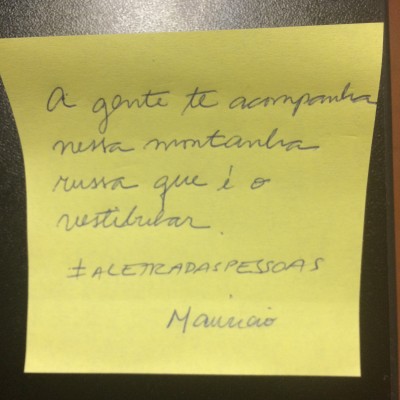 A gente te acompanha
nessa montanha
russa que é o
vestibular.
#ALETRADASPESSOAS
Mauricio